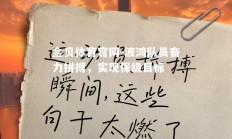 金贝体育官网-波鸿队员奋
力拼搏，实现保级目标
搏
瞬间，这些
句子太燃了